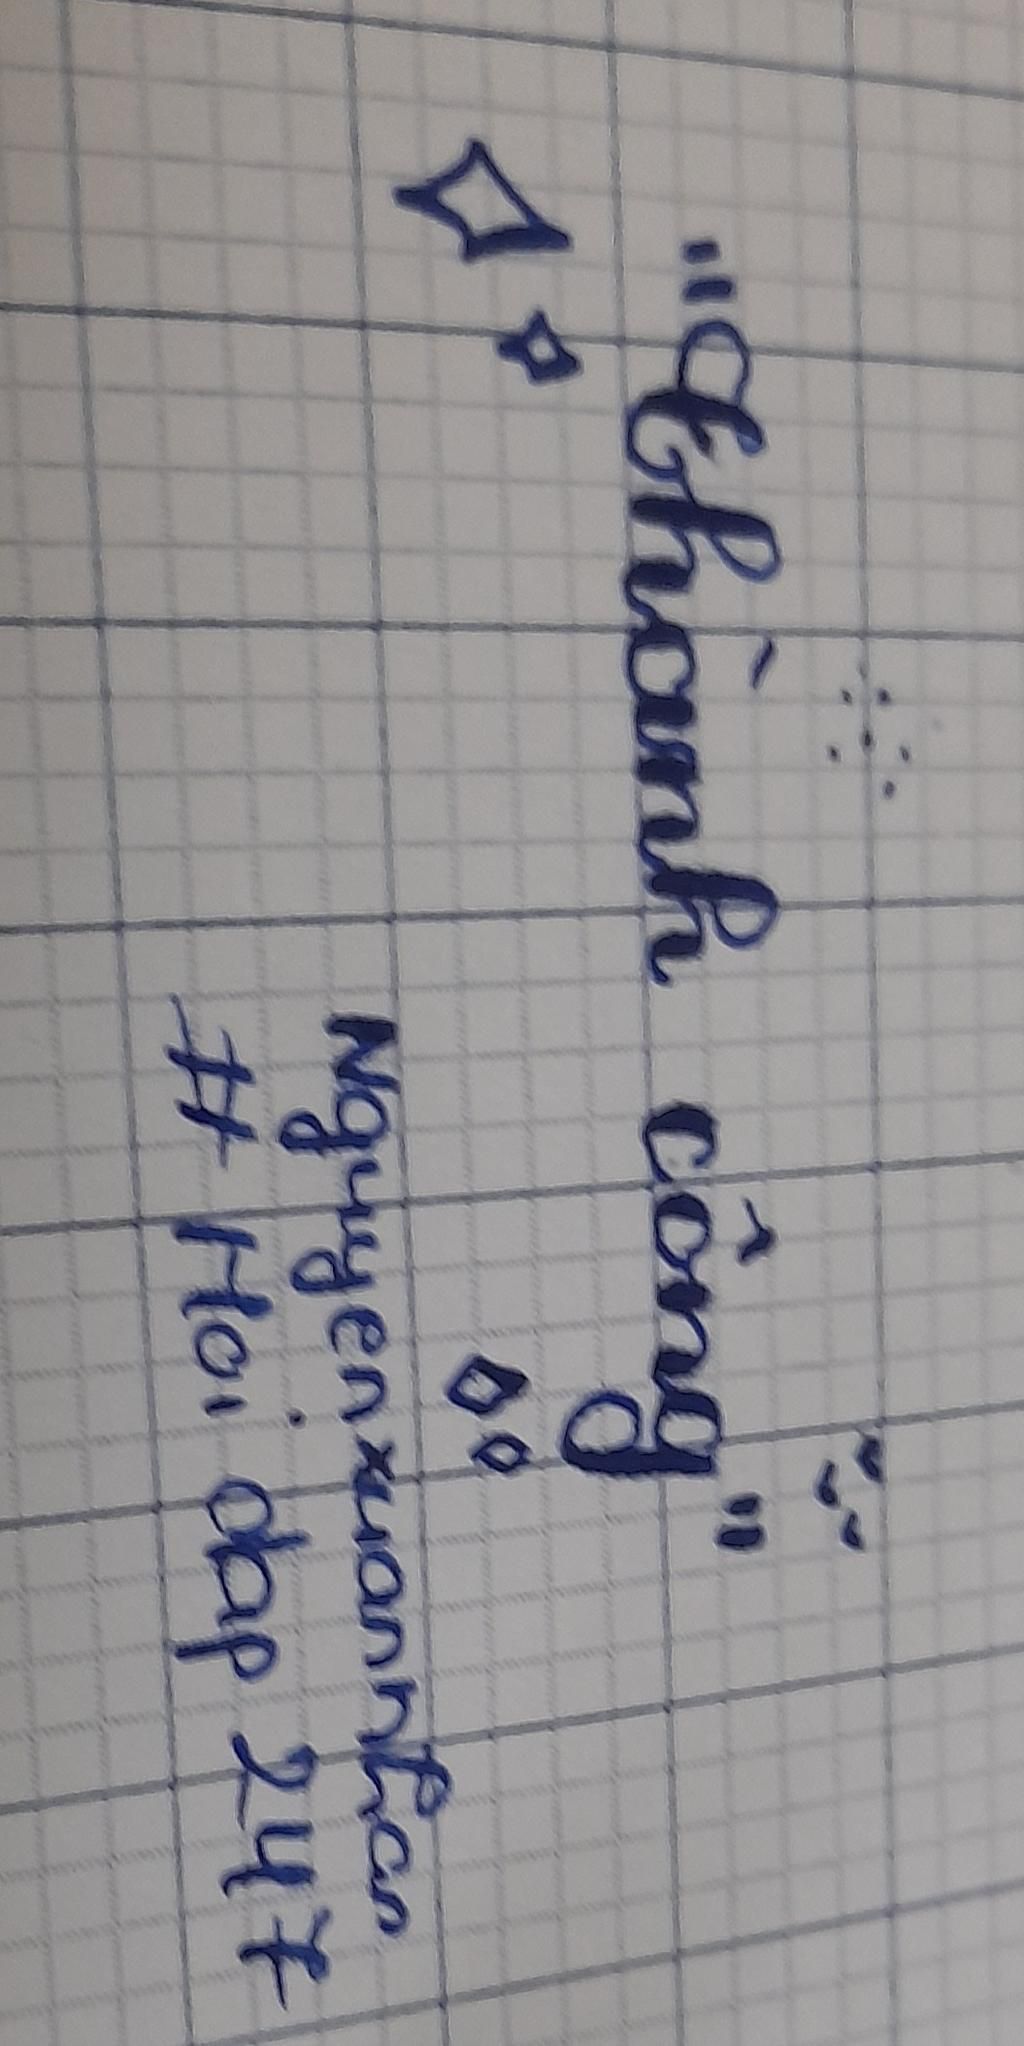 "Thành công"
Nguyenxuannhan
# Hoi dap 247